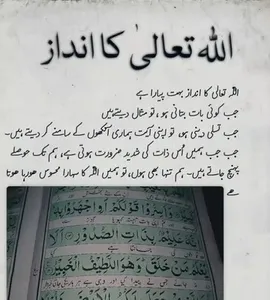 اللہ تعالیٰ کا انداز
اللہ تعالیٰ کا انداز بہت پیارا ہے
جب کوئی بات بتانی ہو، تو مثال دیتے ہیں
جب تسلی دینی ہو، تو اپنی آیت ہماری آنکھوں کے سامنے کر دیتے ہیں۔
جب جب ہمیں اُس ذات کی شدید ضرورت ہوتی ہے، ہم تک حوصلے
پہنچ جاتے ہیں۔ ہم تنہا بھی ہوں، تو ہمیں اللہ کا سہارا محسوس ہو رہا ہوتا
ہے
وَاَسِرُّوْا قَوْلَكُمْ اَوِ اجْهَرُوْا بِهٖ
عَلِيْمٌۢ بِذَاتِ الصُّدُوْرِ اَلَا
يَعْلَمُ مَنْ خَلَقَ وَهُوَ اللَّطِيْفُ الْخَبِيْرُ